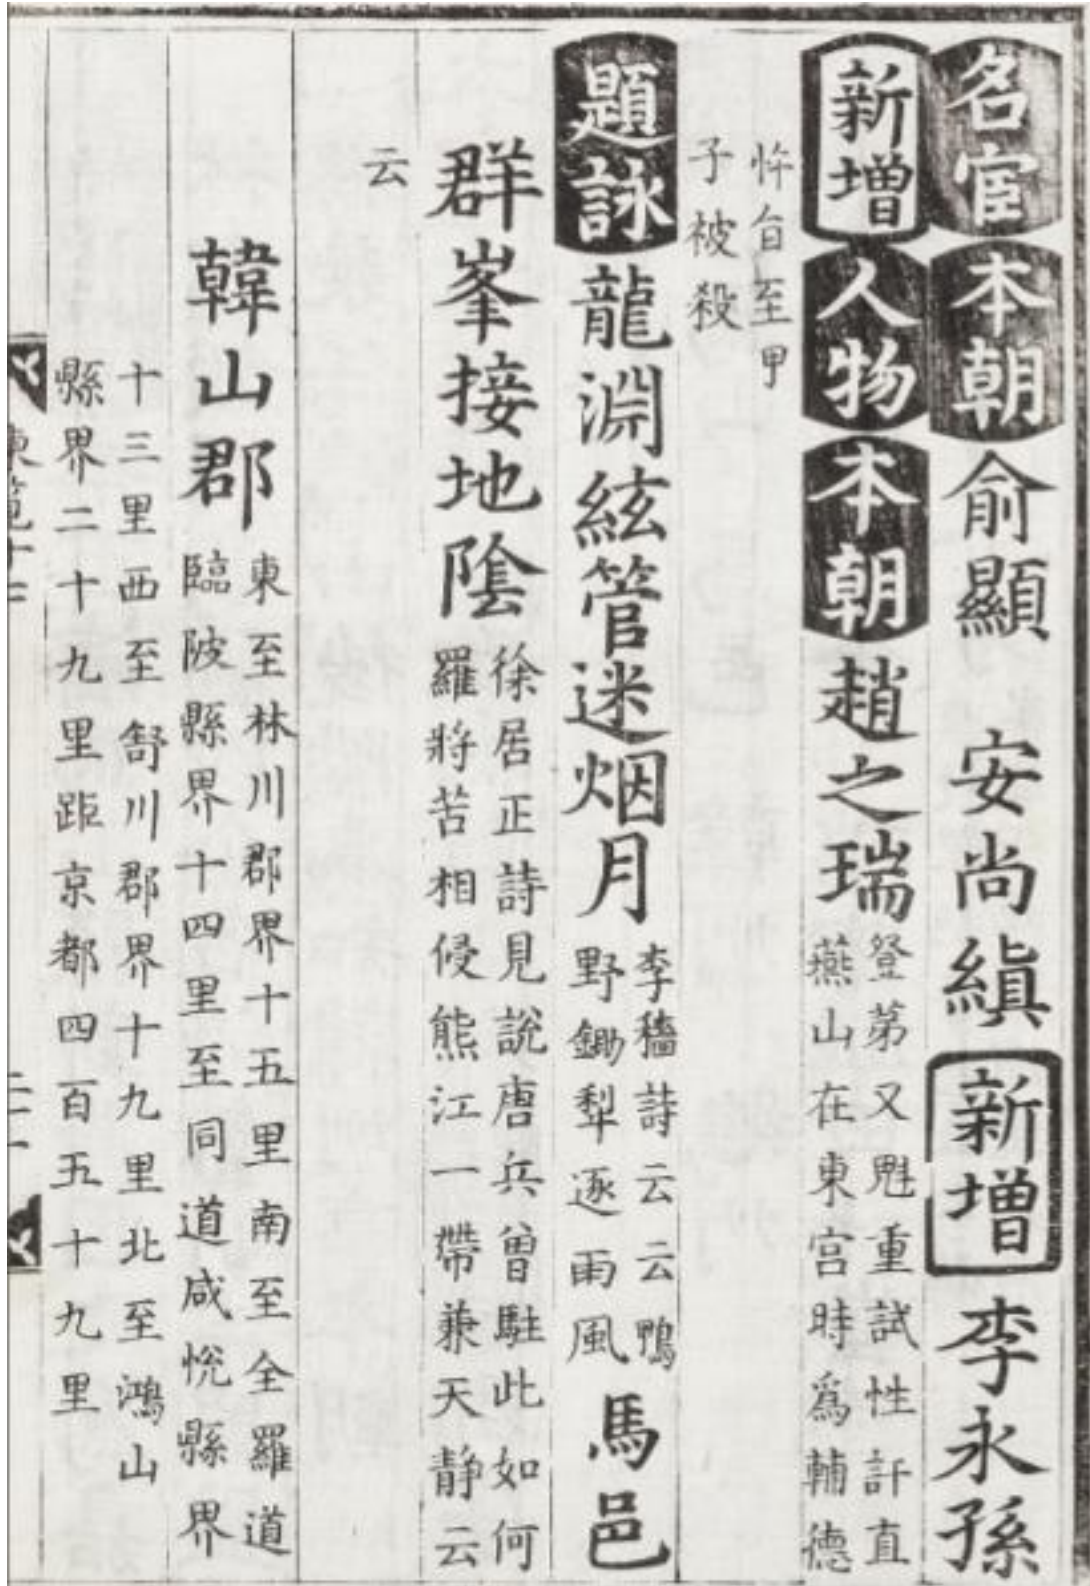 名宦本朝俞顯 安尚縝新增李永孫
新增人物本朝趙之瑞登第又魁重試性訐直
燕山在東宫時爲輔德
忤旨至甲
子被殺
題詠龍淵絃管迷烟月李穡詩云云鴨
野鋤犁逐雨風馬邑
群峯接地陰徐居正詩見說唐兵曾駐此如何
羅將苦相侵熊江一帶兼天静云
云
韓山郡東至林川郡界十五里南至全羅道
臨陂縣界十四里至同道咸悅縣界
十三里西至舒川郡界十九里北至鴻山
縣界二十九里距京都四百五十九里